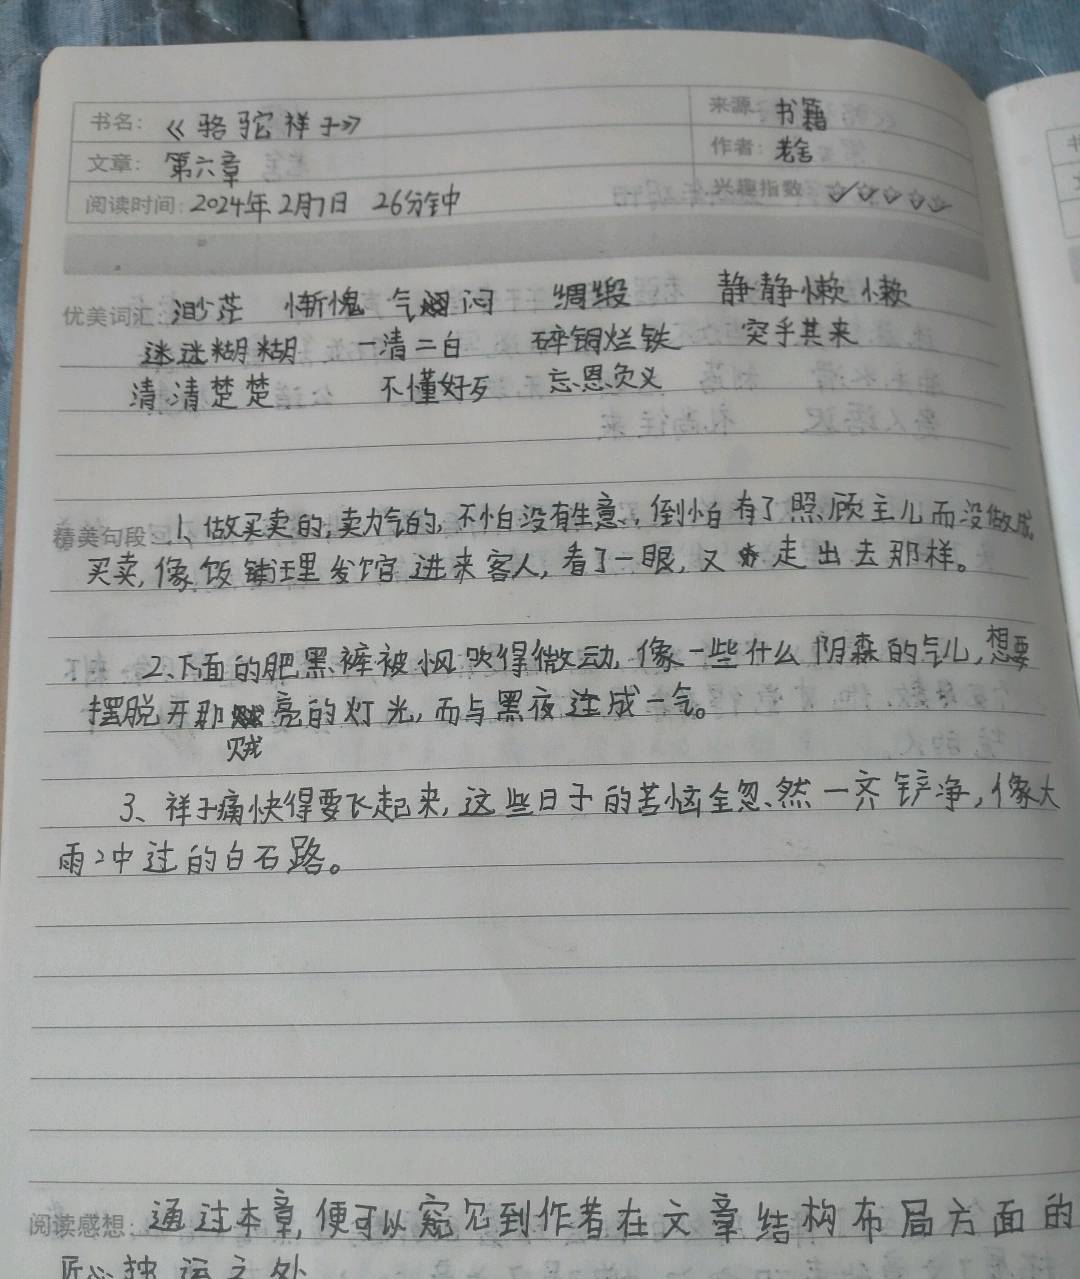 书名：《骆驼祥子》 来源：书籍
文章：第六章 作者：老舍
阅读时间：2024年2月7日 26分钟 兴趣指数
优美词汇：渺茫 惭愧 气闷 绸缎 静静懒懒
迷迷糊糊 一清二白 碎铜烂铁 突乎其来
清清楚楚 不懂好歹 忘恩负义
精美句段：1、做买卖的，卖力气的，不怕没有生意，倒怕有了照顾主儿而没做成
买卖，像饭铺理发馆进来客人，看了一眼，又走出去那样。
2、下面的肥黑裤被小风吹得微动，像一些什么阴森的气儿，想要
摆脱开那贼亮的灯光，而与黑夜连成一气。
3、祥子痛快得要飞起来，这些日子的苦恼全忽然一齐铲净，像大
雨冲过的白石路。
阅读感想：通过本章，便可以窥见到作者在文章结构布局方面的
匠心独运之处